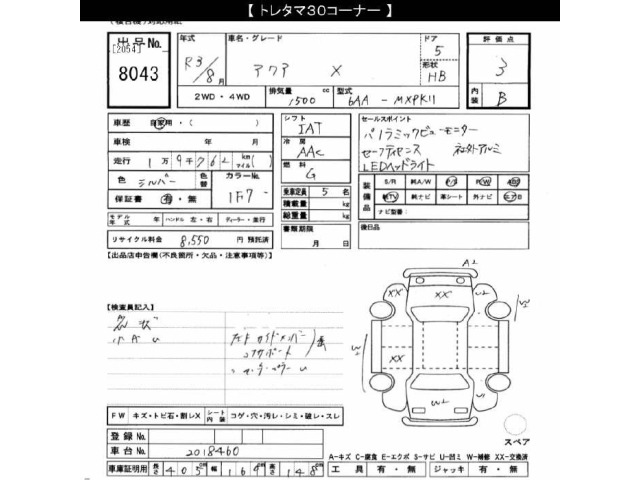 【 トレタマ30コーナー 】
(複合機)対応用紙
出品No.
[2054]
8043
年式 R3/8月
車名・グレード アクア X
ドア 5
形状 HB
評価点 3
内装 B
2WD・4WD
排気量 1500 cc
型式 6AA-MXPK11
車歴 自家用・( )
車検 年 月
走行 1万9千762 km マイル( )
色 シルバー 色替
カラーNo. 1F7
保証書 有・無
モデル年式 年 ハンドル 左・右 ディーラー・並行
リサイクル料金 8,550 円 預託済
シフト IAT
冷房 AAC
燃料 G
乗車定員 5 名
積載量 kg
総重量 kg
書類期限
月 日
セールスポイント
パノラミックビューモニター
セーフティセンス 社外アルミ
LEDヘッドライト
装備品 S/R 純A/W P/S P/W ABS
純TV 純ナビ 革シート 外ナビ エアB
ナビ型番:
後日品
【出品店申告欄(不良箇所・欠品・注意事項等)】
【検査員記入】
FW キズ・トビ石・割レX シート内装 コゲ・穴・汚レ・シミ・破レ・スレ
登録No.
車台No. 2018460
車庫証明用 長さ 405 cm 幅 169 cm 高さ 148 cm
A2
XX XX U2
W2
XX
W2
W2
スペア
A-キズ C-腐食 E-エクボ S-サビ U-凹ミ W-補修 XX-交換済
工具 有・無 ジャッキ 有・無